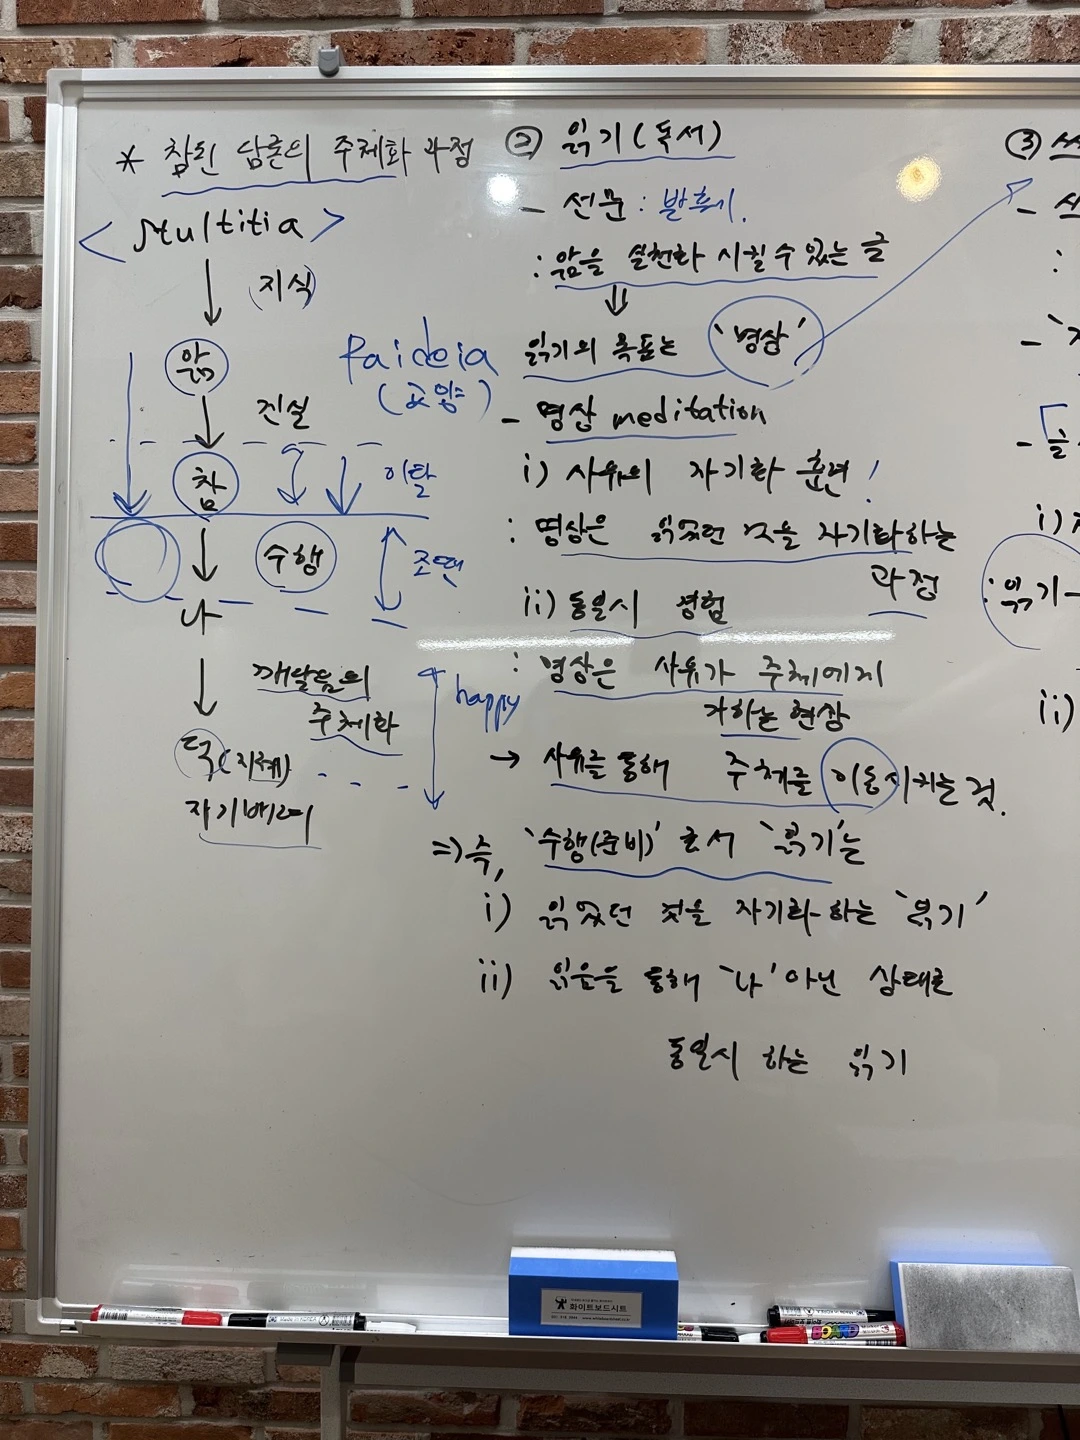 * 참된 담론의 주체화 과정
< Stultitia >
(지식)
앎
진실
참
이탈
수행
조면
나
깨달음의
주체화
덕(지혜)
자기배려
Paideia
(교양)
happy
② 읽기(독서)
- 선문 : 발췌.
: 앎을 실천화 시킬 수 있는 글
⇓
읽기의 목표는 '명상'
- 명상 meditation
i) 사유의 자기화 훈련!
: 명상은 읽었던 것을 자기화하는
과정
ii) 동일시 경험
: 명상은 사유가 주체에게
가하는 현상
→ 사유를 통해 주체를 이동시키는 것.
⇒ 즉, '수행(준비)'로서 '읽기'는
i) 읽었던 것을 자기화하는 '읽기'
ii) 읽음을 통해 '나' 아닌 상태로
동일시 하는 읽기
③
i)
: 읽기
ii)
화이트보드시트